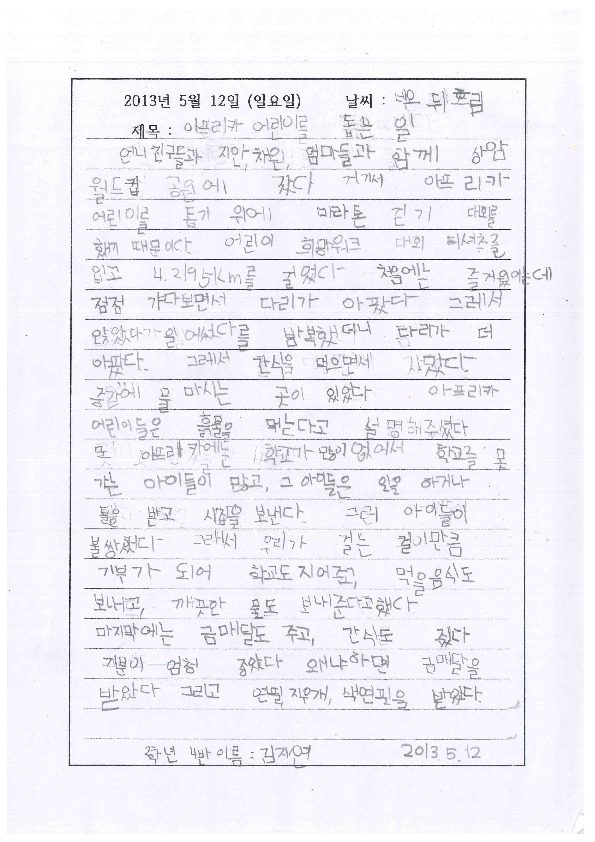 2013년 5월 12일 (일요일) 날씨 : 맑은 뒤 흐림
제목 : 아프리카 어린이를 돕는 일
언니친구들과 지안, 채원, 엄마들과 함께 상암
월드컵 공원에 갔다 거기서 아프리카
어린이를 돕기 위에 마라톤 걷기 대회를
했기 때문이다. 어린이 희망워크 대회 티셔츠를
입고 4.2195km를 걸었다 처음에는 즐거웠는데
점점 가다보면서 다리가 아팠다 그래서
앉았다가 일어섰다를 반복했더니 다리가 더
아팠다. 그래서 간식을 먹으면서
중간에 물 마시는 곳이 있었다 아프리카
어린이들은 흙물을 먹는다고 설명해주셨다
또 아프리카에는 학교가 많이 없어서 학교를 못
가는 아이들이 많고, 그 아이들은 일을 하거나
돌을 받고 시집을 보낸다. 그런 아이들이
불쌍했다 그래서 우리가 걷는 걸이만큼
기부가 되어 학교도 지어주고, 먹을음식도
보내고, 깨끗한 물도 보내준다고했다
마지막에는 금메달도 주고, 간식도 줬다
기분이 엄청 좋았다 왜냐하면 금메달을
받았다 그리고 연필, 지우개, 색연필을 받았다.
2학년 4반 이름 : 김지연 2013.5.12